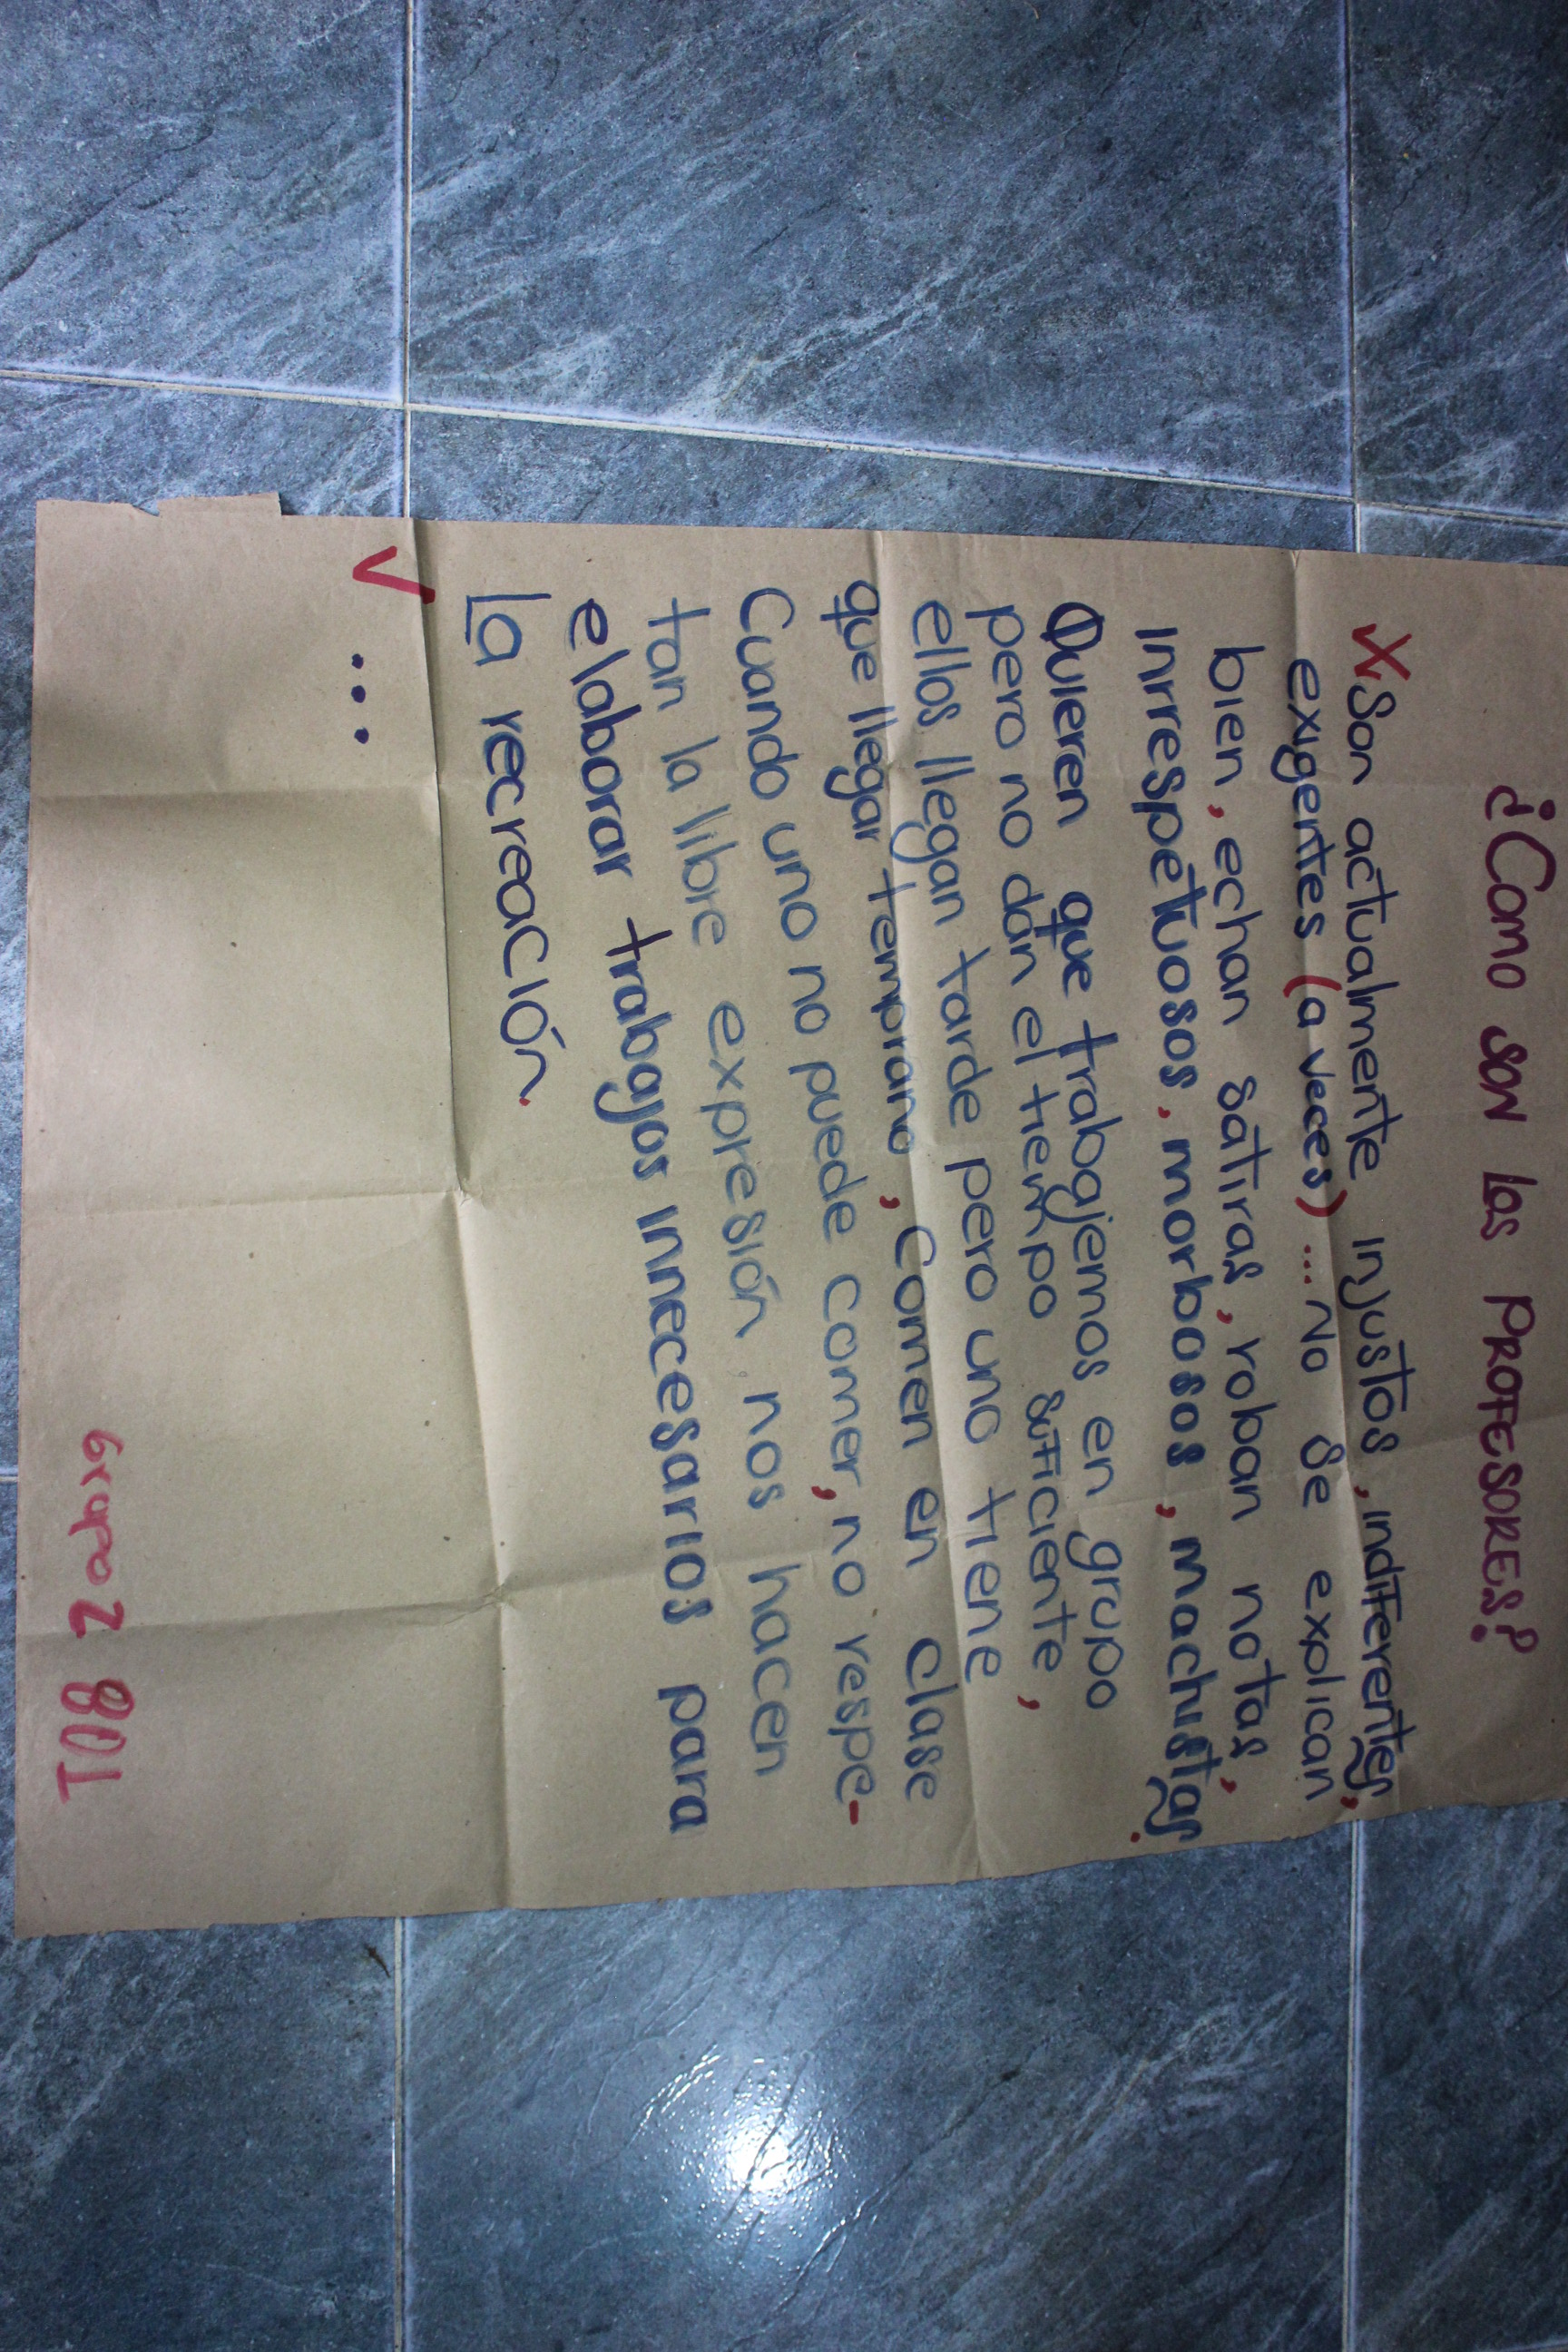 ¿Como son los PROFESORES?
X Son actualmente injustos, indiferentes,
exigentes (a veces) ... No se explican
bien, echan satiras, roban notas,
inrrespetuosos, morbosos, machistas.
Quieren que trabajemos en grupo
pero no dan el tiempo suficiente,
ellos llegan tarde pero uno tiene
que llegar temprano, comen en clase
Cuando uno no puede comer, no respe-
tan la libre expresión. nos hacen
elaborar trabajos innecesarios para
La recreación.
✓ ...
Grupo 2 T08